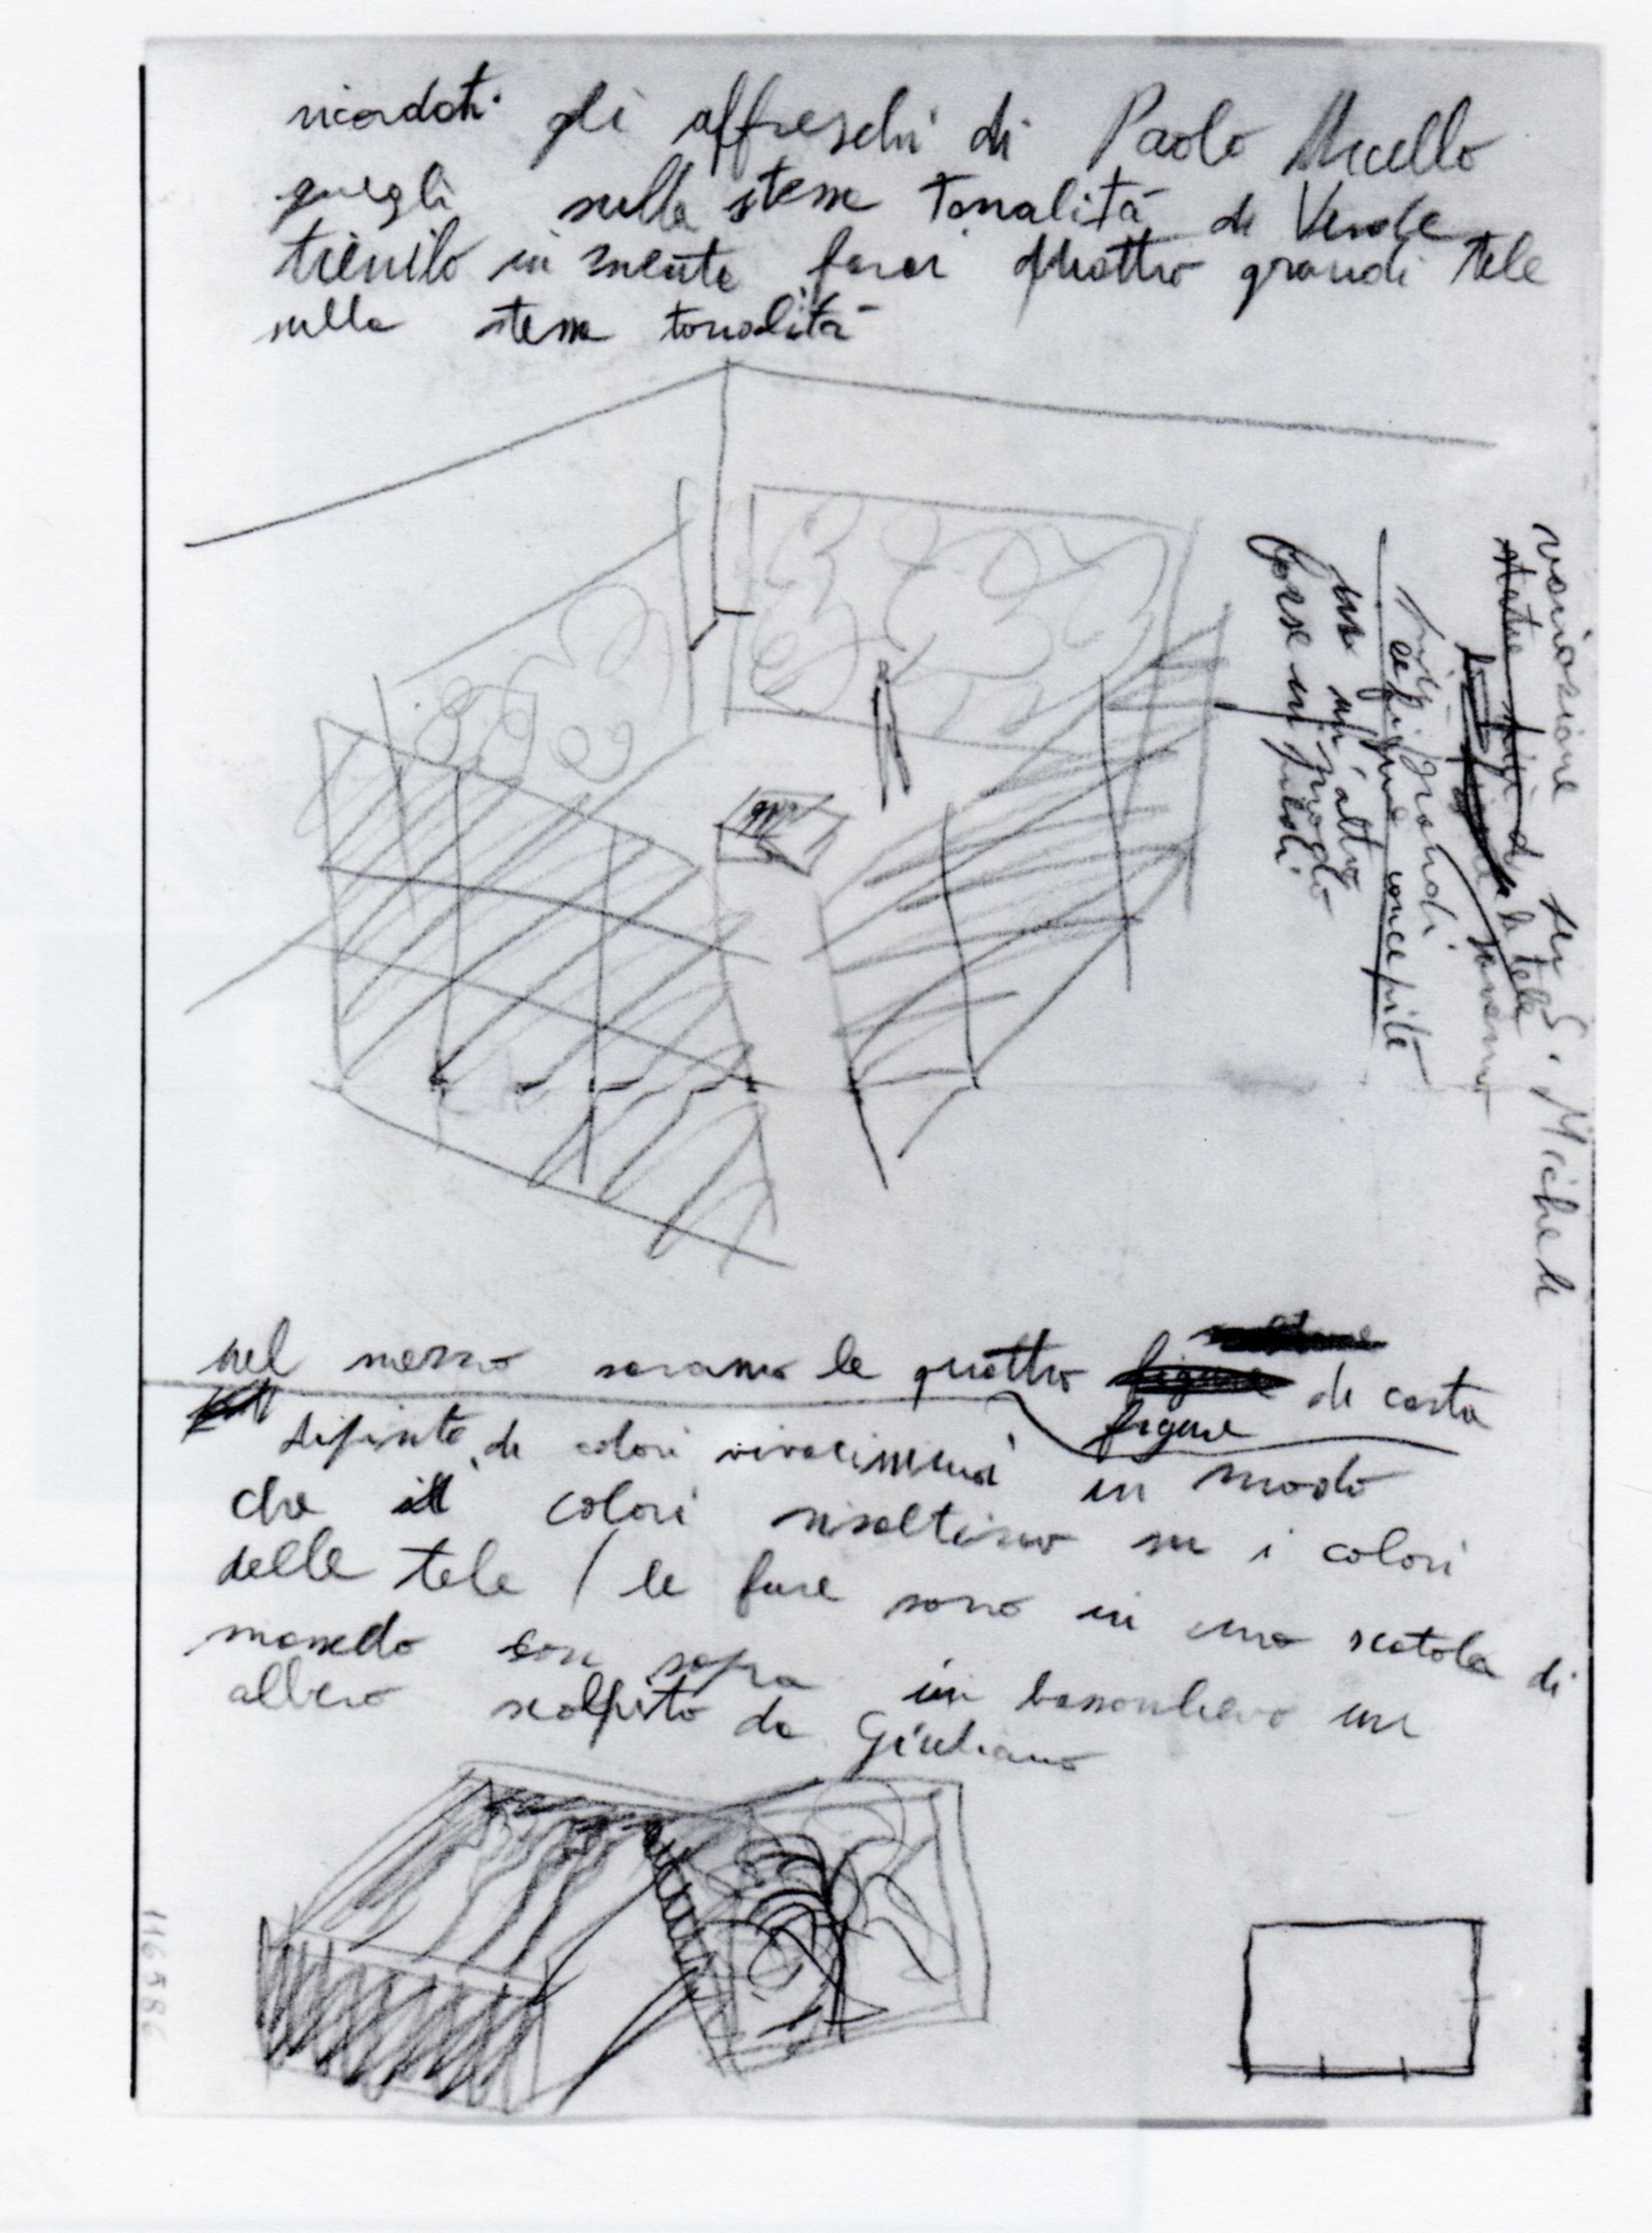 ricordati gli affreschi di Paolo Uccello
quegli sulla stessa tonalità di Verde
tienilo in mente farai quattro grandi tele
sulla stessa tonalità
variazione su S. Michele
la tela
saranno
più grandi
le figure concepite
in un altro
modo
forse in piedi
nel mezzo saranno le quattro di carta
figure
dipinte di colori vivacissimi in modo
che i colori risaltino su i colori
delle tele / le fuse sono in una scatola di
con sopra in bassorilievo un
albero scolpito da Giuliano
116586